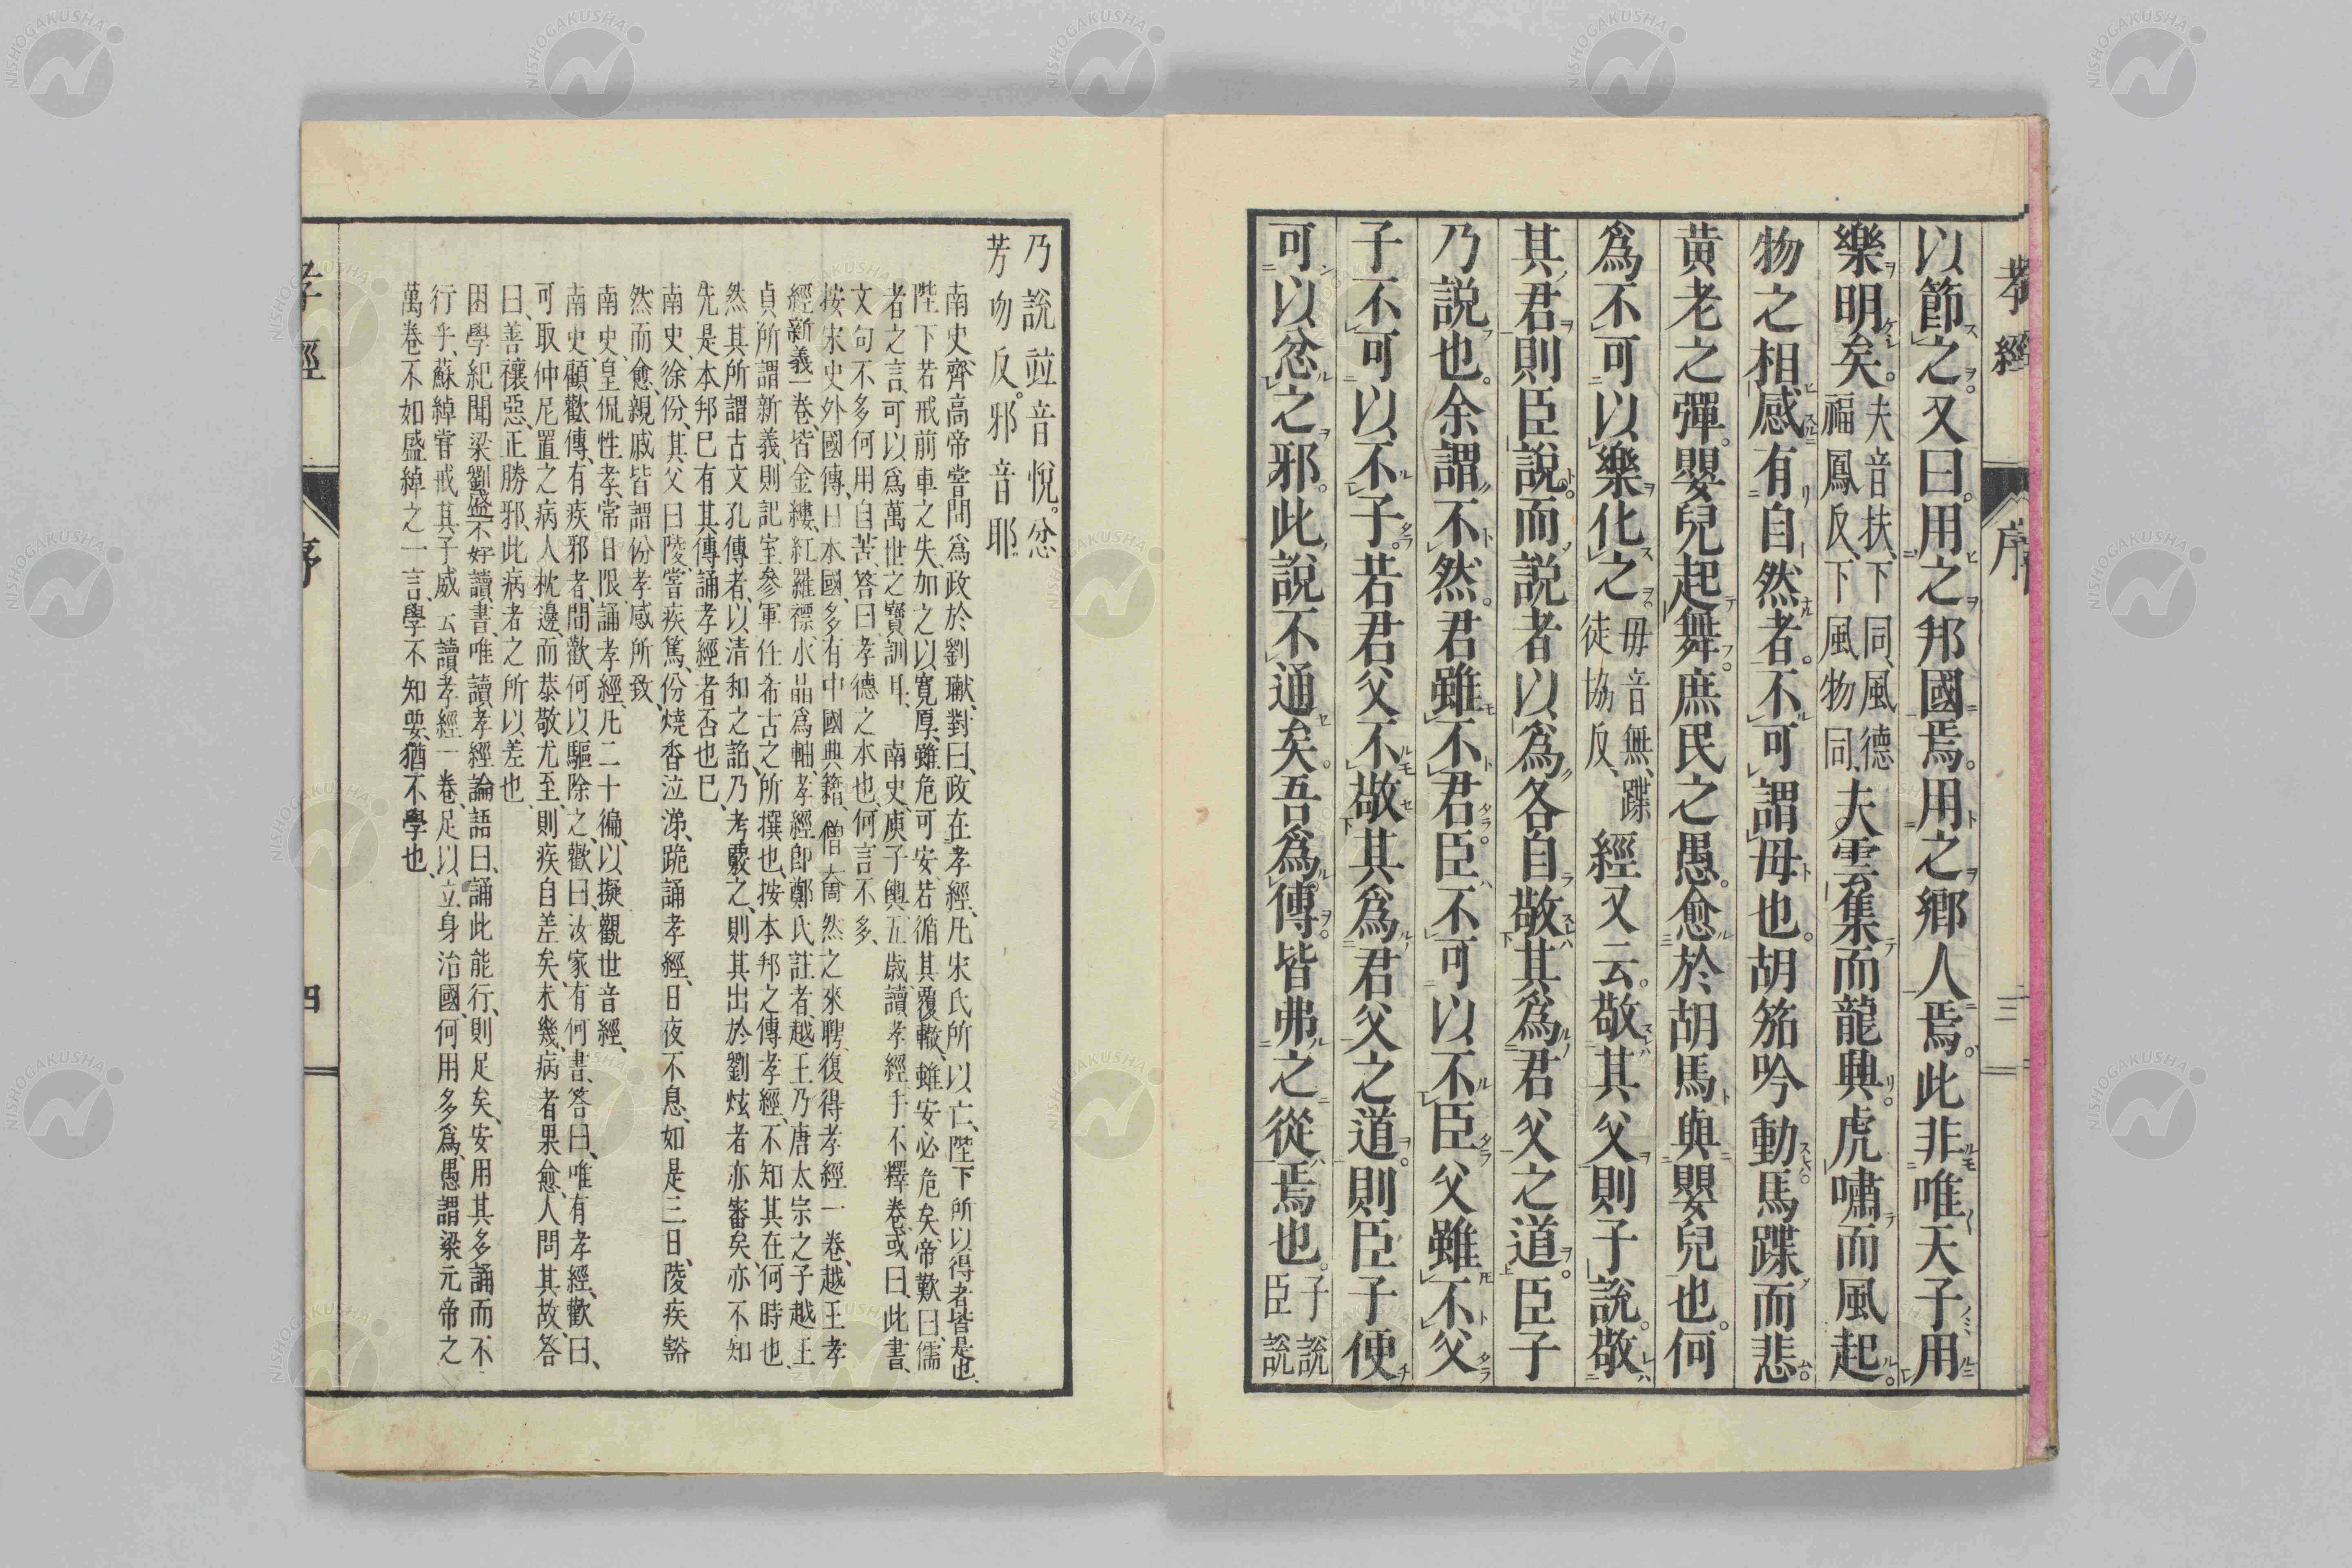 孝經 序 三
以節之又曰。用之邦國焉。用之鄉人焉。此非唯天子用
樂明矣。夫音扶、下同、風德福鳳反、下風物同、夫雲集而龍興。虎嘯而風起。
物之相感有自然者。不可謂毋也。胡笳吟動馬蹀而悲。
黄老之彈。嬰兒起舞。庶民之愚。愈於胡馬與嬰兒也。何
爲不可以樂化之。毋音無、蹀徒協反、經又云。敬其父則子說。敬
其君則臣說。而説者以爲各自敬其爲君父之道。臣子
乃説也。余謂不然。君雖不君。臣不可以不臣。父雖不父
子不可以不子。若君父不敬其爲君父之道。則臣子便
可以忿之邪。此説不通矣。吾爲傳。皆弗之從焉也。子說臣說
乃説竝音悅。忿
芳吻反。邪音耶
南史、齊高帝嘗問爲政於劉瓛、對曰、政在孝經、凡宋氏所以亡、陛下所以得者皆是也、
陛下若戒前車之失、加之以寛厚、雖危可安、若循其覆轍、雖安必危矣、帝歎曰、儒
者之言、可以爲萬世之寶訓耳、 南史、庾子輿五歳讀孝經手不釋卷、或曰、此書、
文句不多何用自苦、答曰、孝德之本也、何言不多、
按宋史外國傳、日本國、多有中國典籍、僧奝然之來聘、復得孝經一卷、越王孝
經新義一卷、皆金縷、紅羅褾、水晶爲軸、孝經即鄭氏註者、越王乃唐太宗之子越王
貞所謂新義、則記室參軍任希古之所撰也、按本邦之傳孝經、不知其在何時也、
然其所謂古文孔傳者、以清和之詔、乃考覈之、則其出於劉炫者亦審矣、亦不知
先是本邦已有其傳誦孝經者否也已、
南史、徐份、其父曰陵、嘗疾篤、份燒香泣涕、跪誦孝經、日夜不息、如是三日、陵疾豁
然而愈、親戚皆謂份孝感所致、
南史、皇侃性孝、常日限誦孝經、凡二十徧、以擬觀世音經、
南史、顧歡傳、有疾邪者、問歡、何以驅除之、歡曰、汝家有何書、答曰、唯有孝經、歡曰、
可取仲尼置之病人枕邊、而恭敬尤至、則疾自差矣、未幾、病者果愈、人問其故、答
曰、善禳惡、正勝邪、此病者之所以差也、
困學紀聞、梁劉盛不好讀書、唯讀孝經論語曰、誦此能行、則足矣、安用其多誦而不
行乎、蘇綽甞戒其子威云讀孝經一卷、足以立身治國、何用多爲、愚謂梁元帝之
萬卷不如盛綽之一言、學不知要、猶不學也、
孝經 序 四
NISHOGAKUSHA